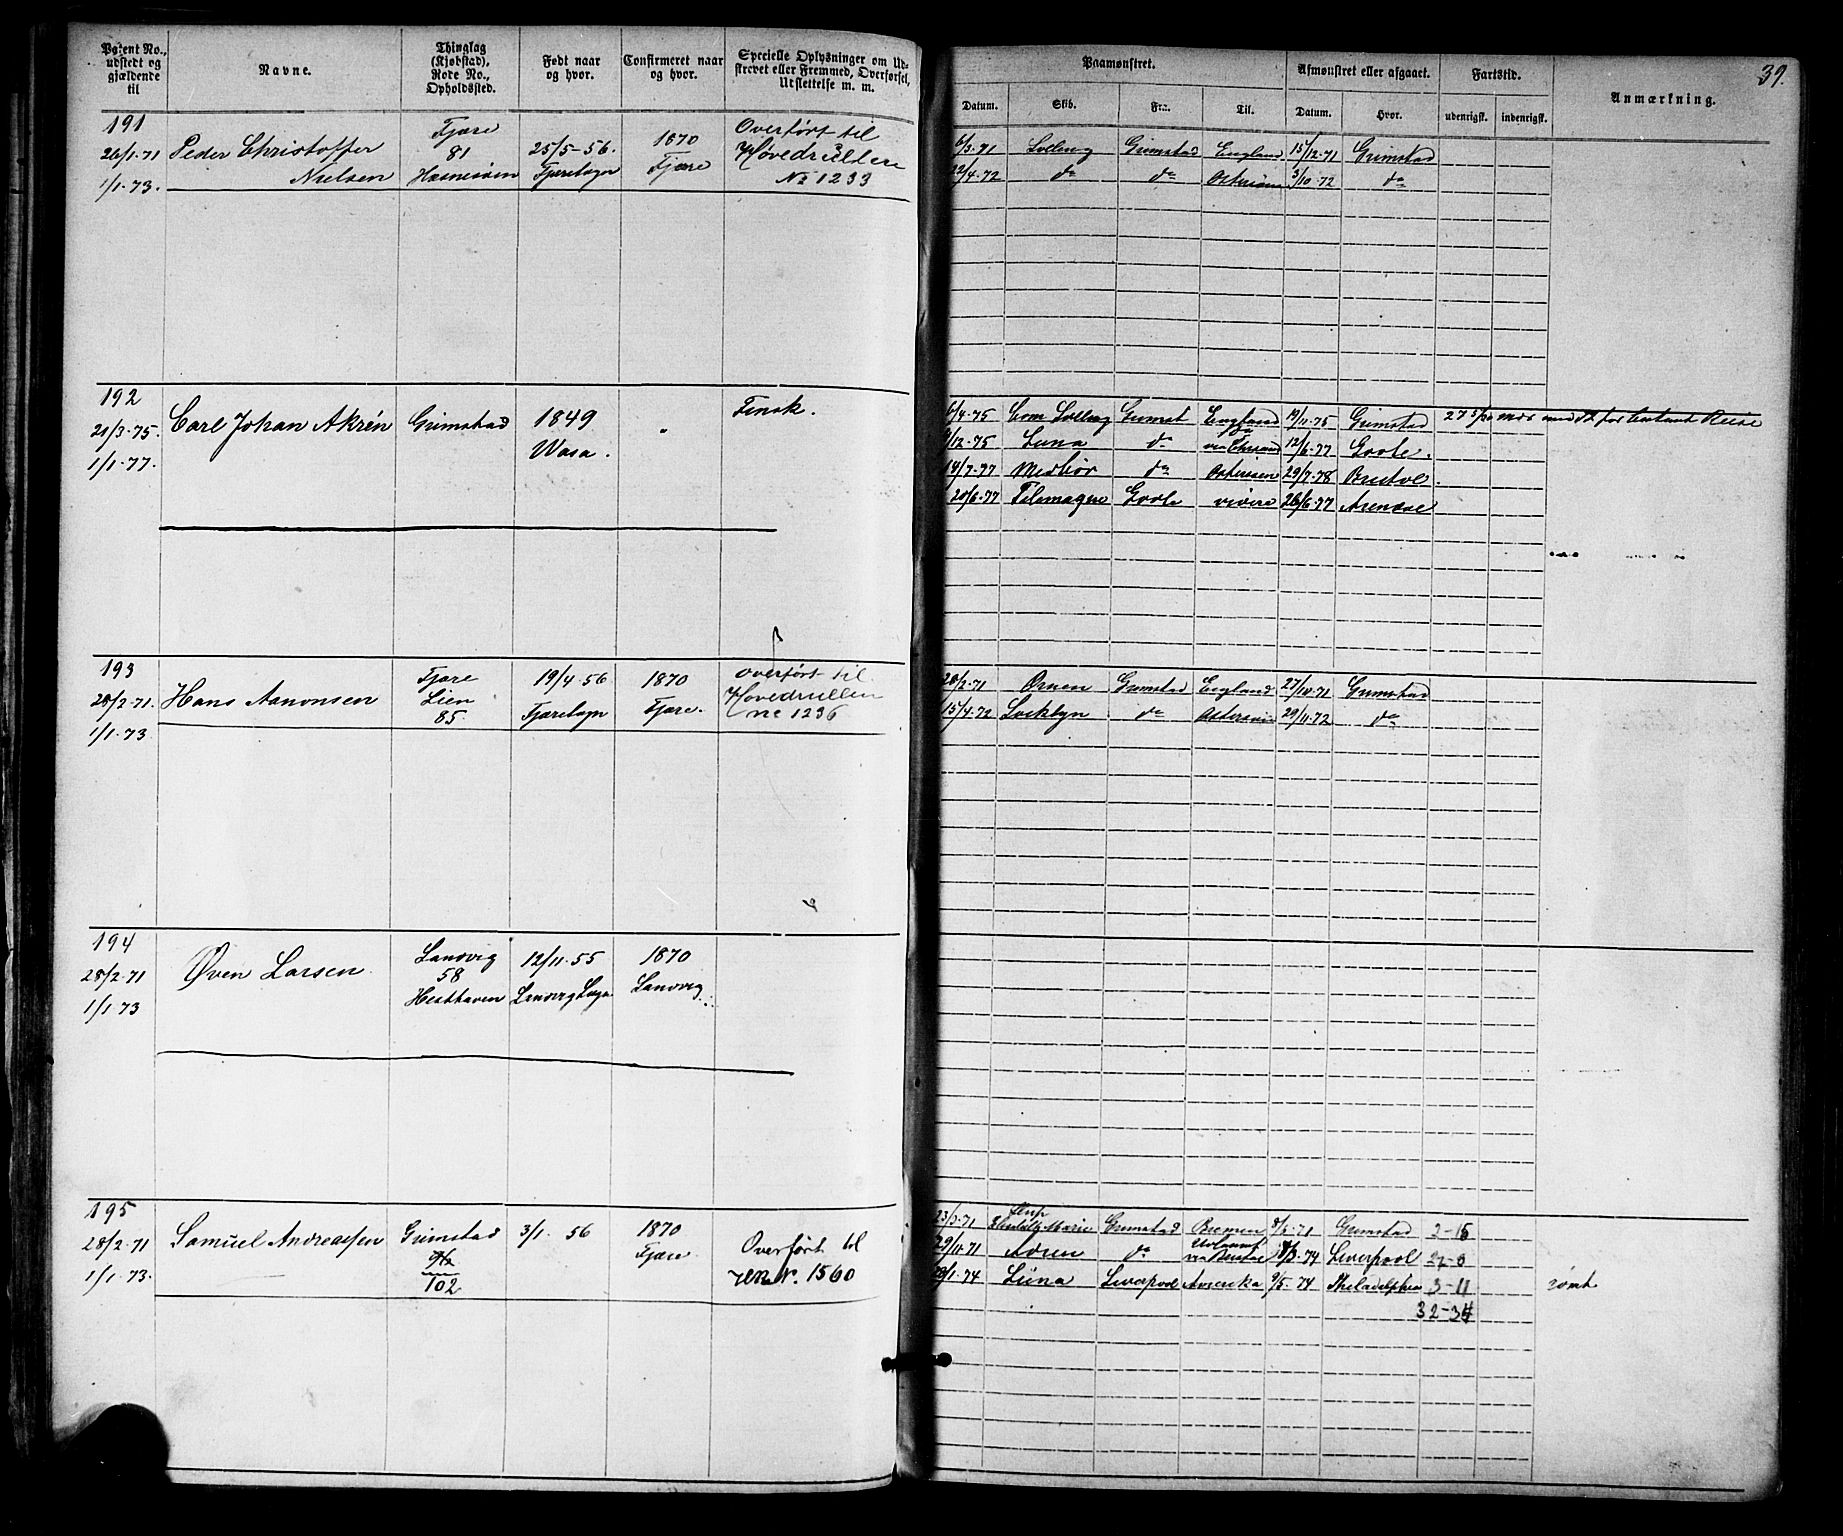 Patent No., udstedt og gjældende til
Navne.
Thinglag (Kjøbstad), Rode No., Opholdssted.
Født naar og hvor.
Confirmeret naar og hvor.
Specielle Oplysninger om Udskrevet eller Fremmed, Overførsel, Udslettelse m. m.
Paamønstret.
Afmønstret eller afgaaet.
Fartstid.
Anmærkning.
39.
Datum.
Skib.
Fra.
Til.
Datum.
Hvor.
udenrigsk.
indenrigsk.
191
26/1-71
1/1-73.
Peder Christoffer
Nielsen
Fjære
81
25/5-56.
Fjæresogn
1870
Fjære
Overført til
Hovedrullen
No 1233
6/3-71 Solberg Grimstad England 15/12-71 Grimstad
22/4-72 do do 3/10-72 do
192
21/3-75.
1/1-77.
Carl Johan Akrén
Grimstad
1849
Wasa.
Finsk.
6/4-75 Solberg Grimst England 19/11-75 Grimstad
/12-75 Luna do 12/6-77 Goole.
14/7-77 do 29/7-78 Bristol.
20/6-77 Telemaque Goole 26/6-77 Arendal
193
28/2-71.
1/1-73.
Hans Aanonsen
Fjære
Lien
85.
19/4-56
Fjæresogn
1870
Fjære.
Overført til
Hovedrullen
No 1236
28/2-71 Ornen Grimstad England 27/10-71 Grimstad
15/4-72 do 29/11-72 do
194
28/2-71
1/1-73
Øven Larsen
Landvig
58
Hesthaven
12/11-55
Landvig Sogn
1870
Landvig
195
28/2-71
1/1-73.
Samuel Andreassen
Grimstad
102
3/1 56
1870
Fjære
Overført til
No. 1560
23/3-71 Marie Grimstad Bremen 8/6-71 Grimstad 2-15
29/11-71 do 8/3-74 Liverpool
28/1-74 Luna Liverpool Amerika 9/5-74 Philadelphia 3-11 rømt
32-34